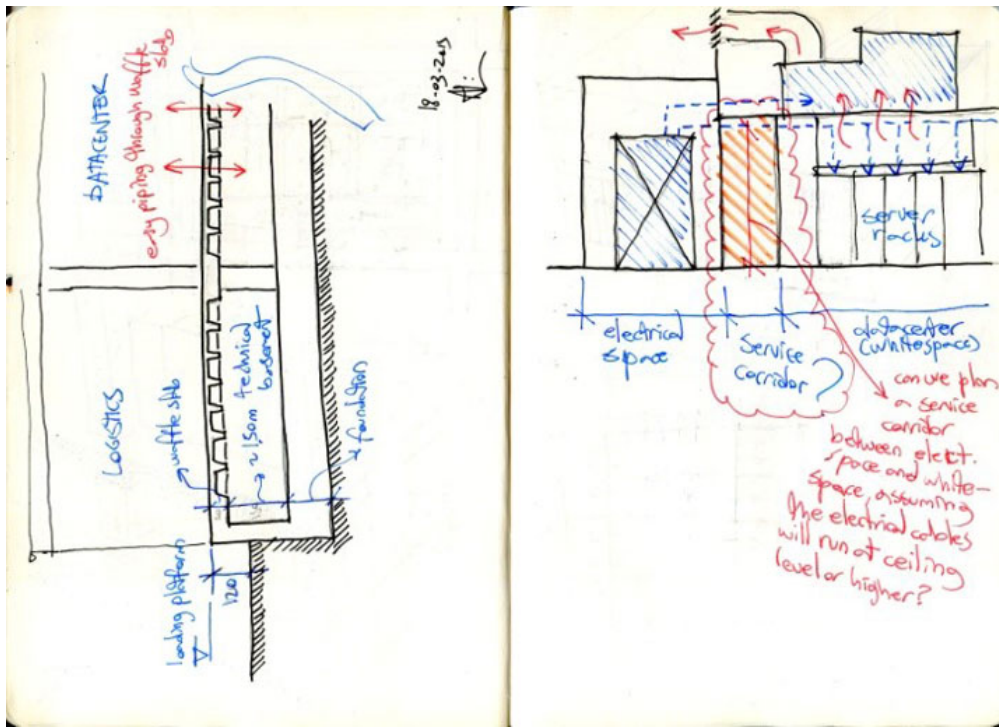 DATACENTER
easy piping through waffle
slab
LOGISTICS
waffle slab
~1,50m technical
basement
foundation
loading platform
120
18-03-2015
server
racks
electrical
space
Service
corridor?
datacenter
(whitespace)
can we plan
a service
corridor
between elect.
space and white-
space, assuming
the electrical cables
will run at ceiling
level or higher?